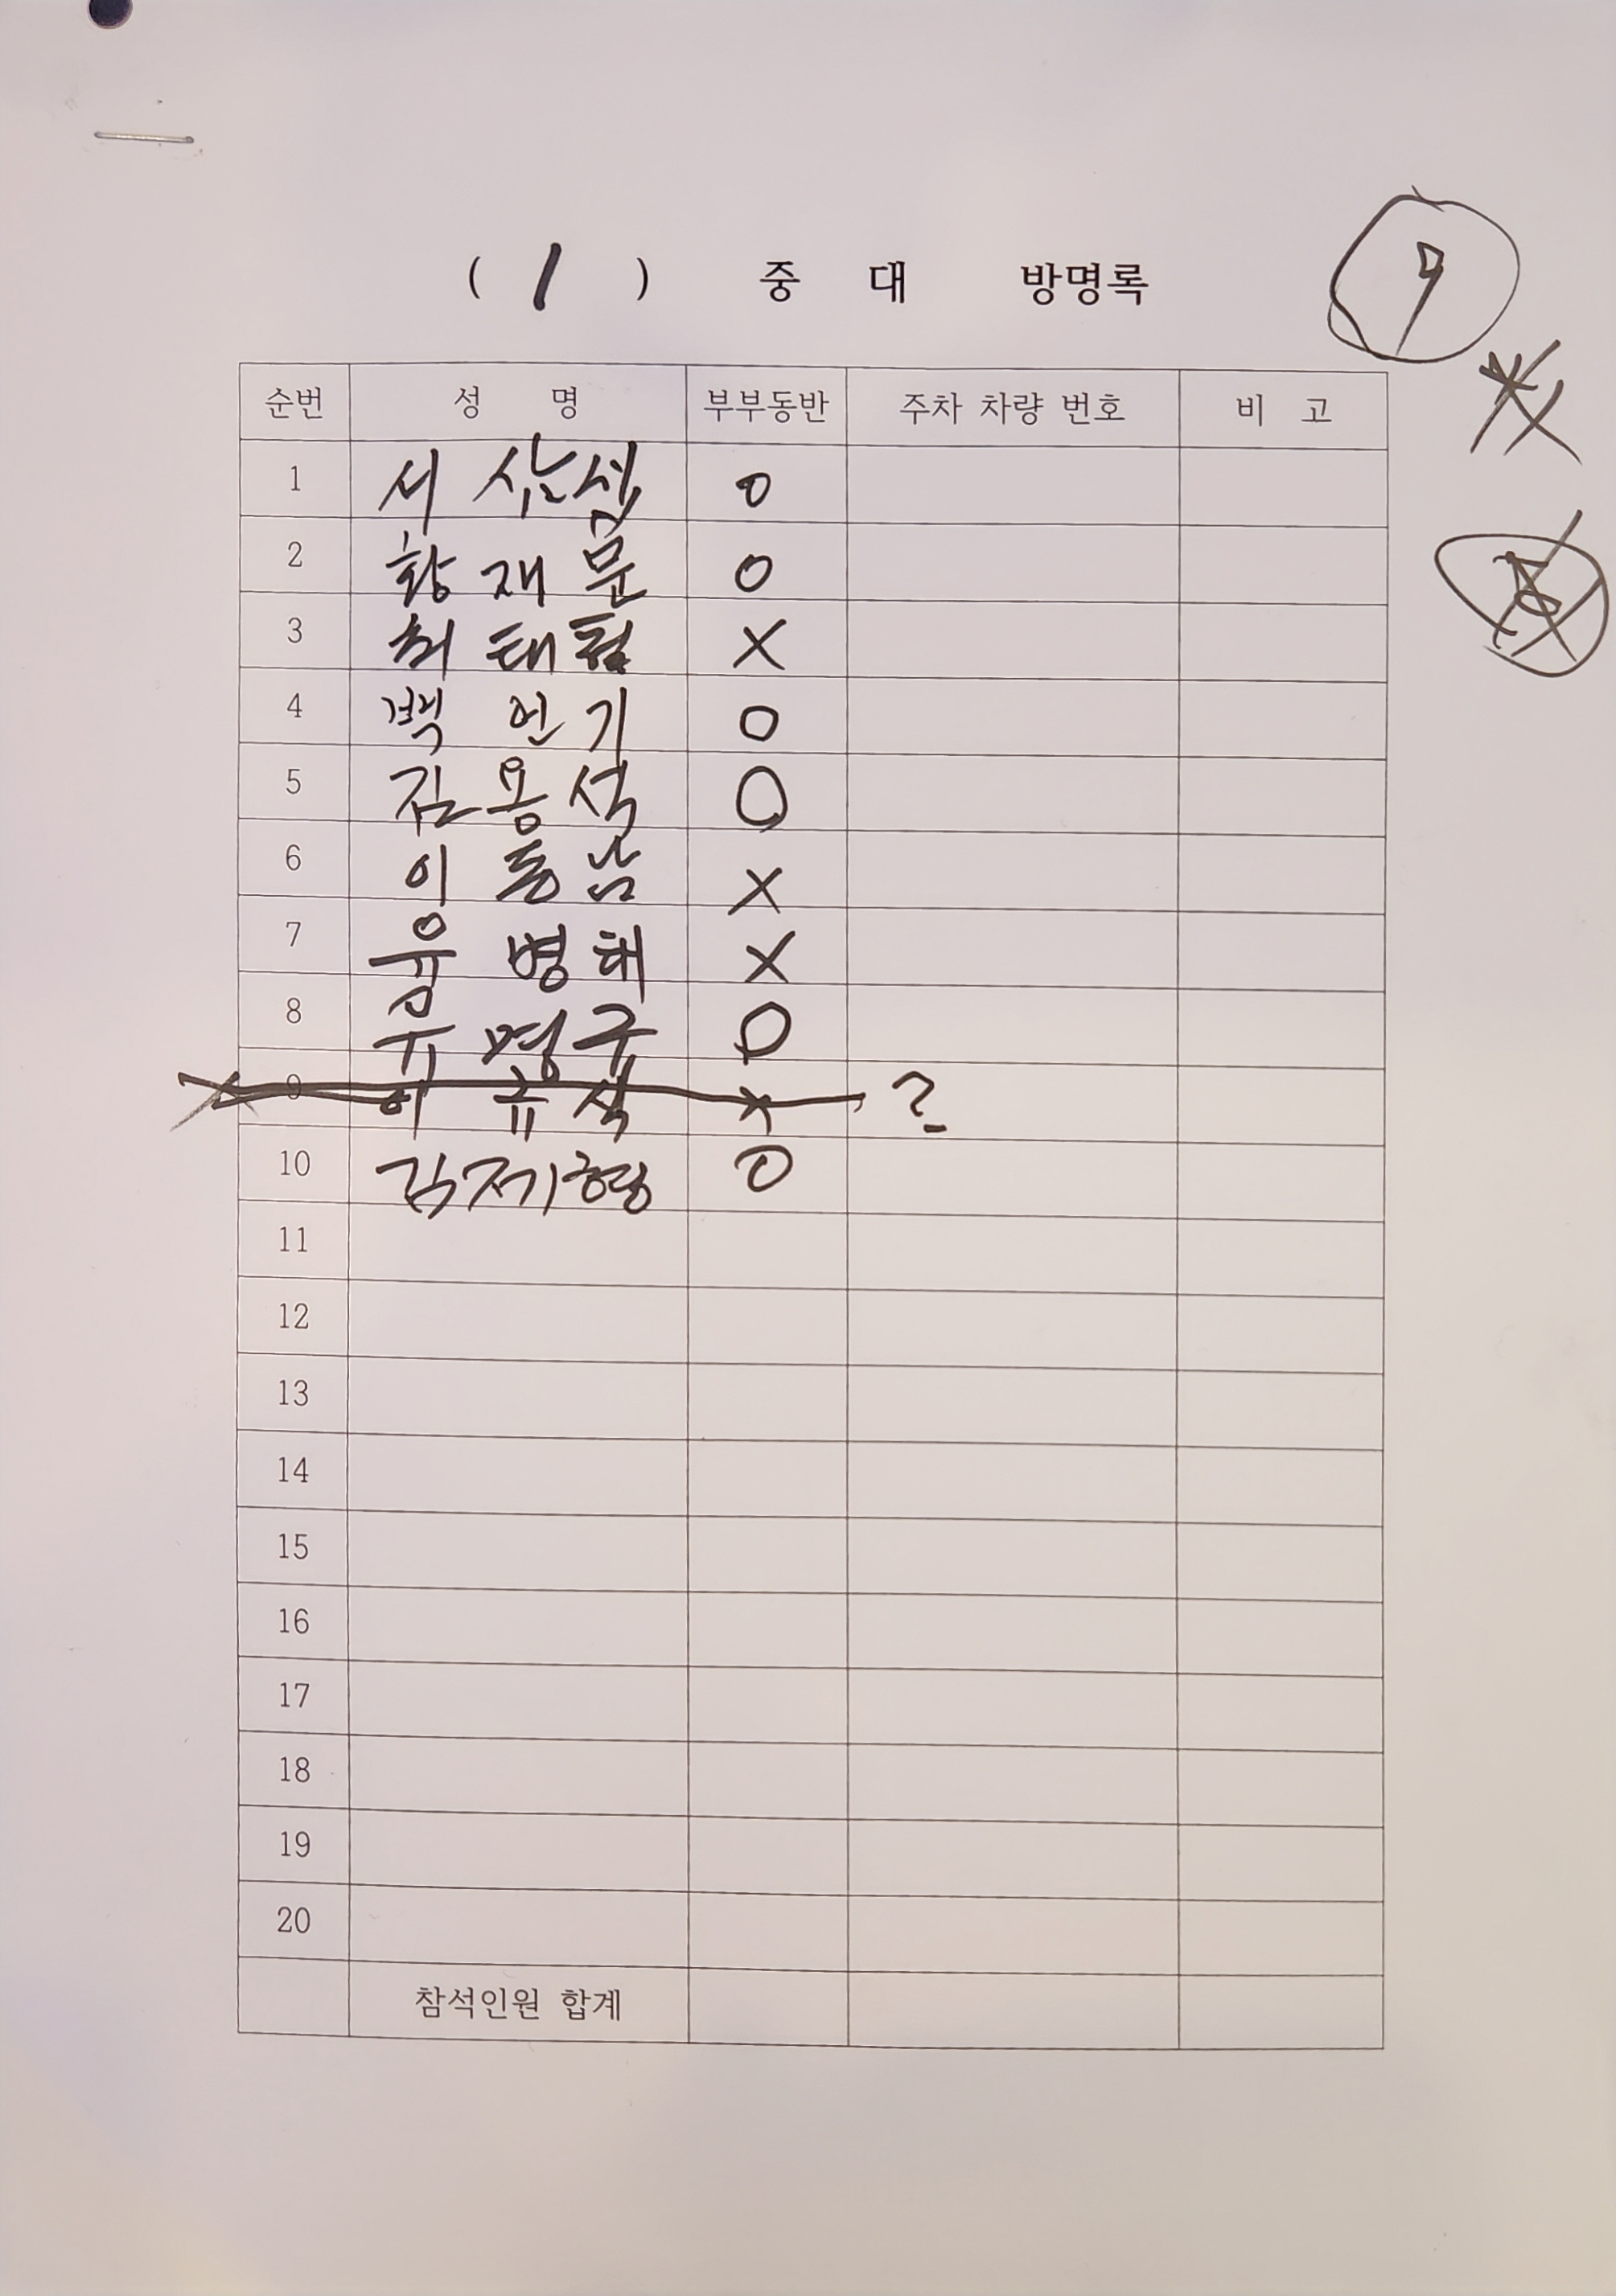 ( 1 ) 중 대 방명록
9
순번 성 명 부부동반 주차 차량 번호 비 고
1 서 삼섭 O
2 황 재 문 O
3 최 태 X
4 백 언 기 O
5 김 용 석 O
6 이 동 남 X
7 윤 병 해 X
8 유 명 규 O
9 이 규 석 X ?
10 김제형 O
11
12
13
14
15
16
17
18
19
20
참석인원 합계